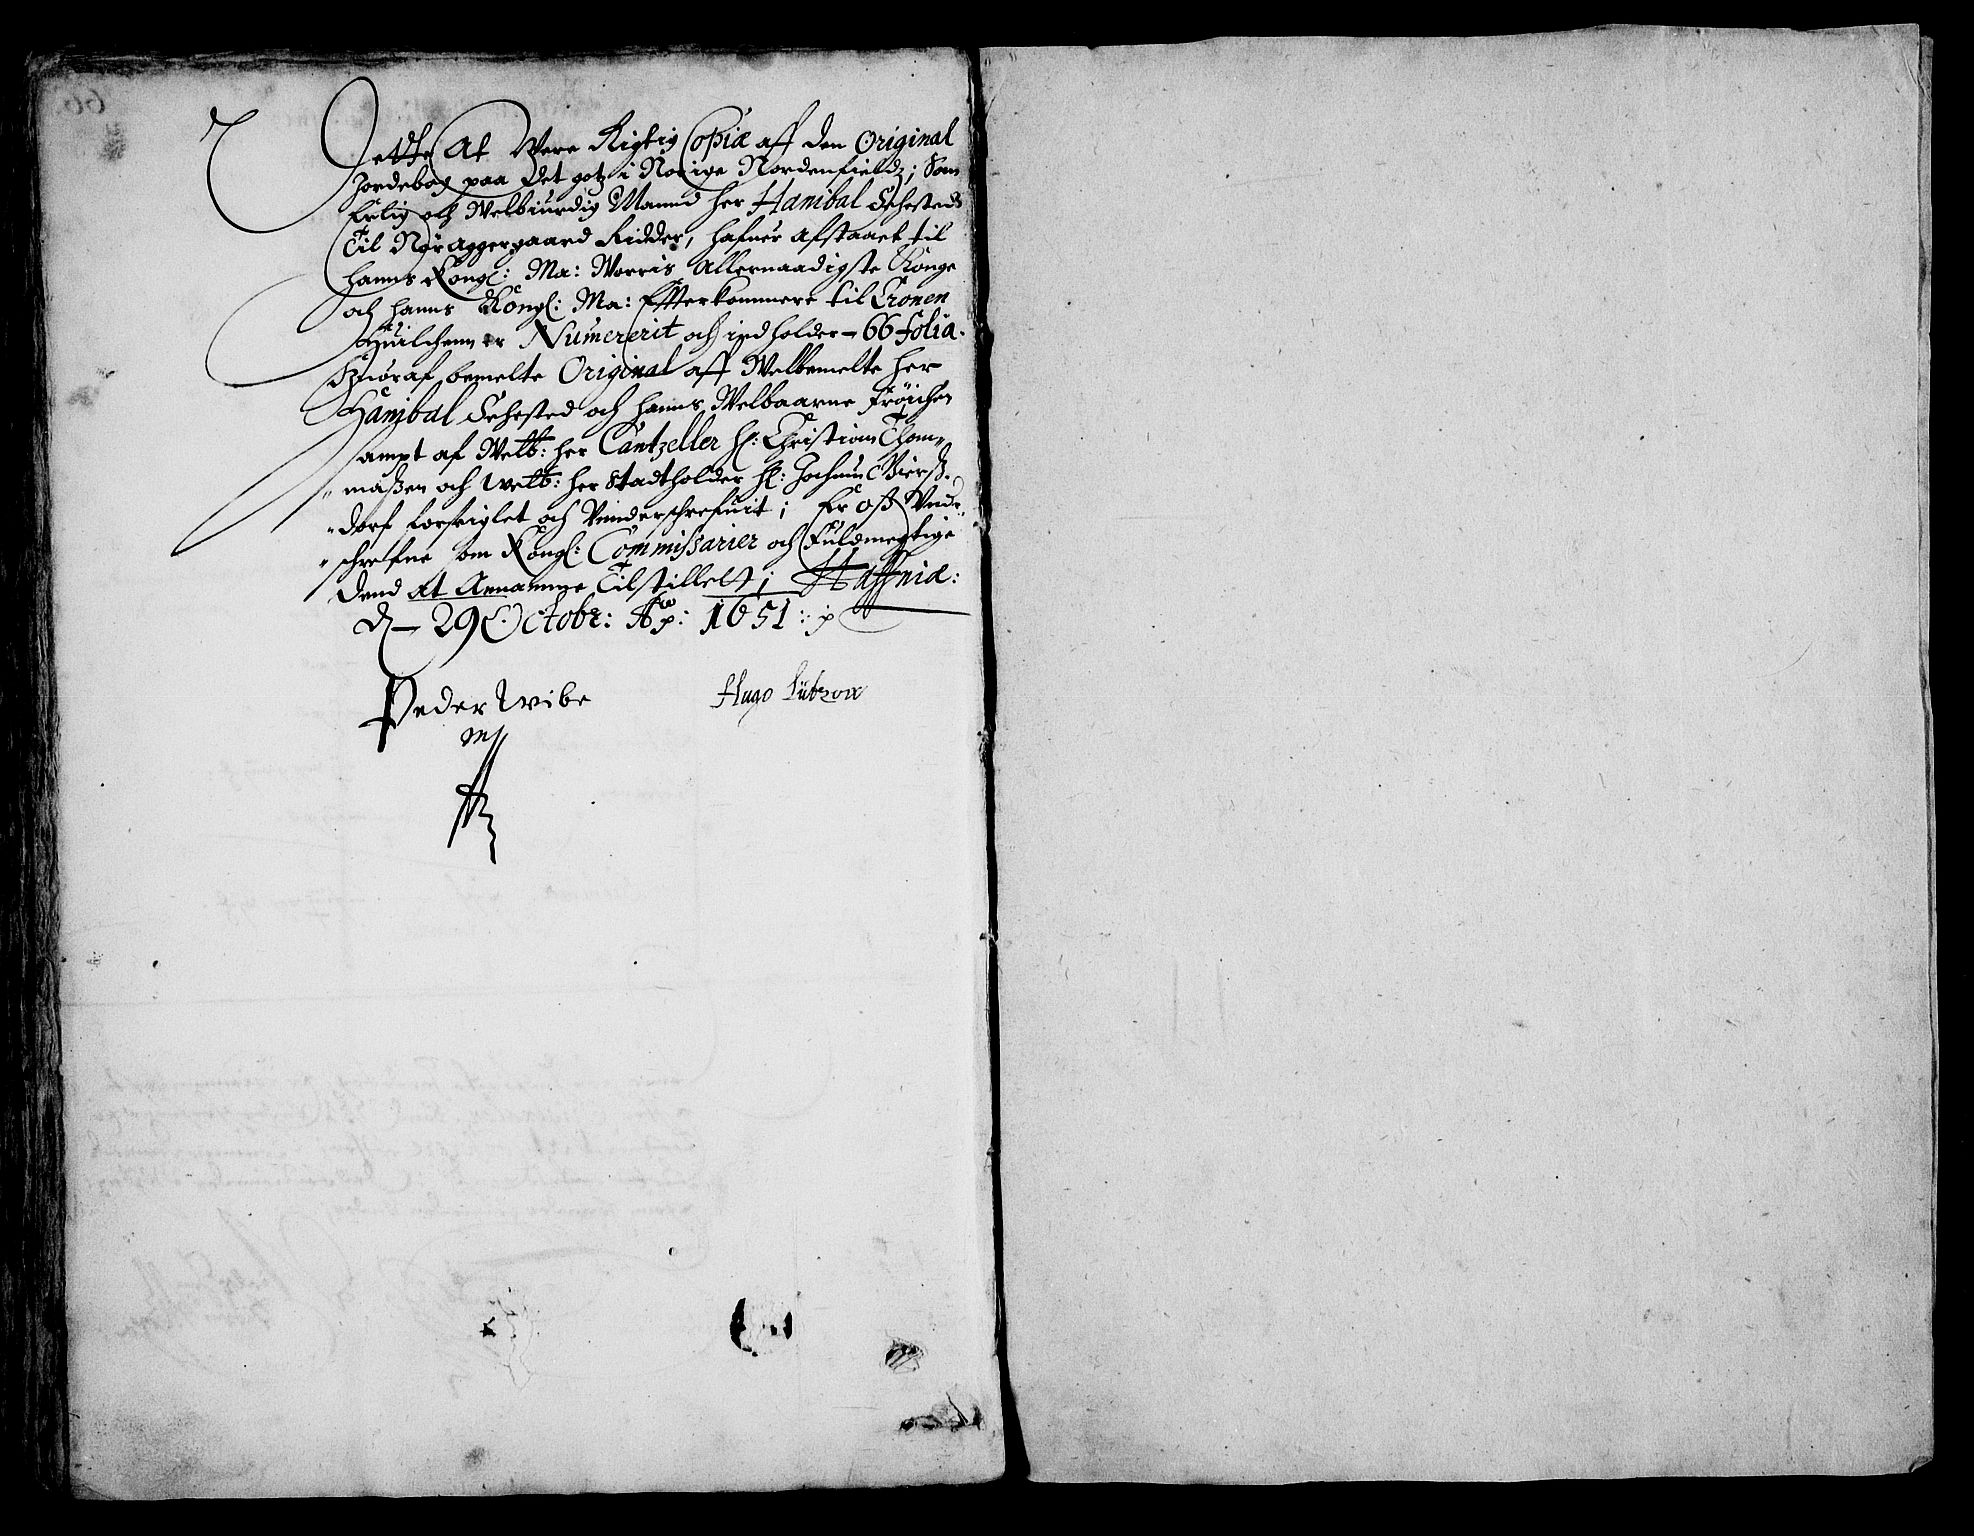 Dette At Vere Rigtig Copiæ aff den Original
Jordebog paa Det gotz i Norige Nordenfieldz; Som
Erlig och Welbiurdig Mannd her Hanibal Sehested
Til Nør aggergaard Ridder, hafuer afstaaet til
hanns Kongl: Ma: Worris Allernaadigste Konge
och hanns Kongl: Ma: Effterkommere til Cronen
Huilchenn er Numererit och indholder 66 folia.
Huoraf bemelte Original aff Welbemelte her
Hanibal Sehested och hanns Welbaarne Frøichen
sampt af Welb: her Cantzeller H: Christian Thom"
"maßen och welb: her Stadtholder H: Jochum Gierß"
"dorf forseiglet och Vnderschrefuit; Er oß Vnder"
"schrefne som Kongl: Commissarier och Fuldmegtige
dend at Annamme Tilstillelt; Haffniæ:
d 29 Octobr: Ao: 1651:
Peder Wibe Hugo Lützow